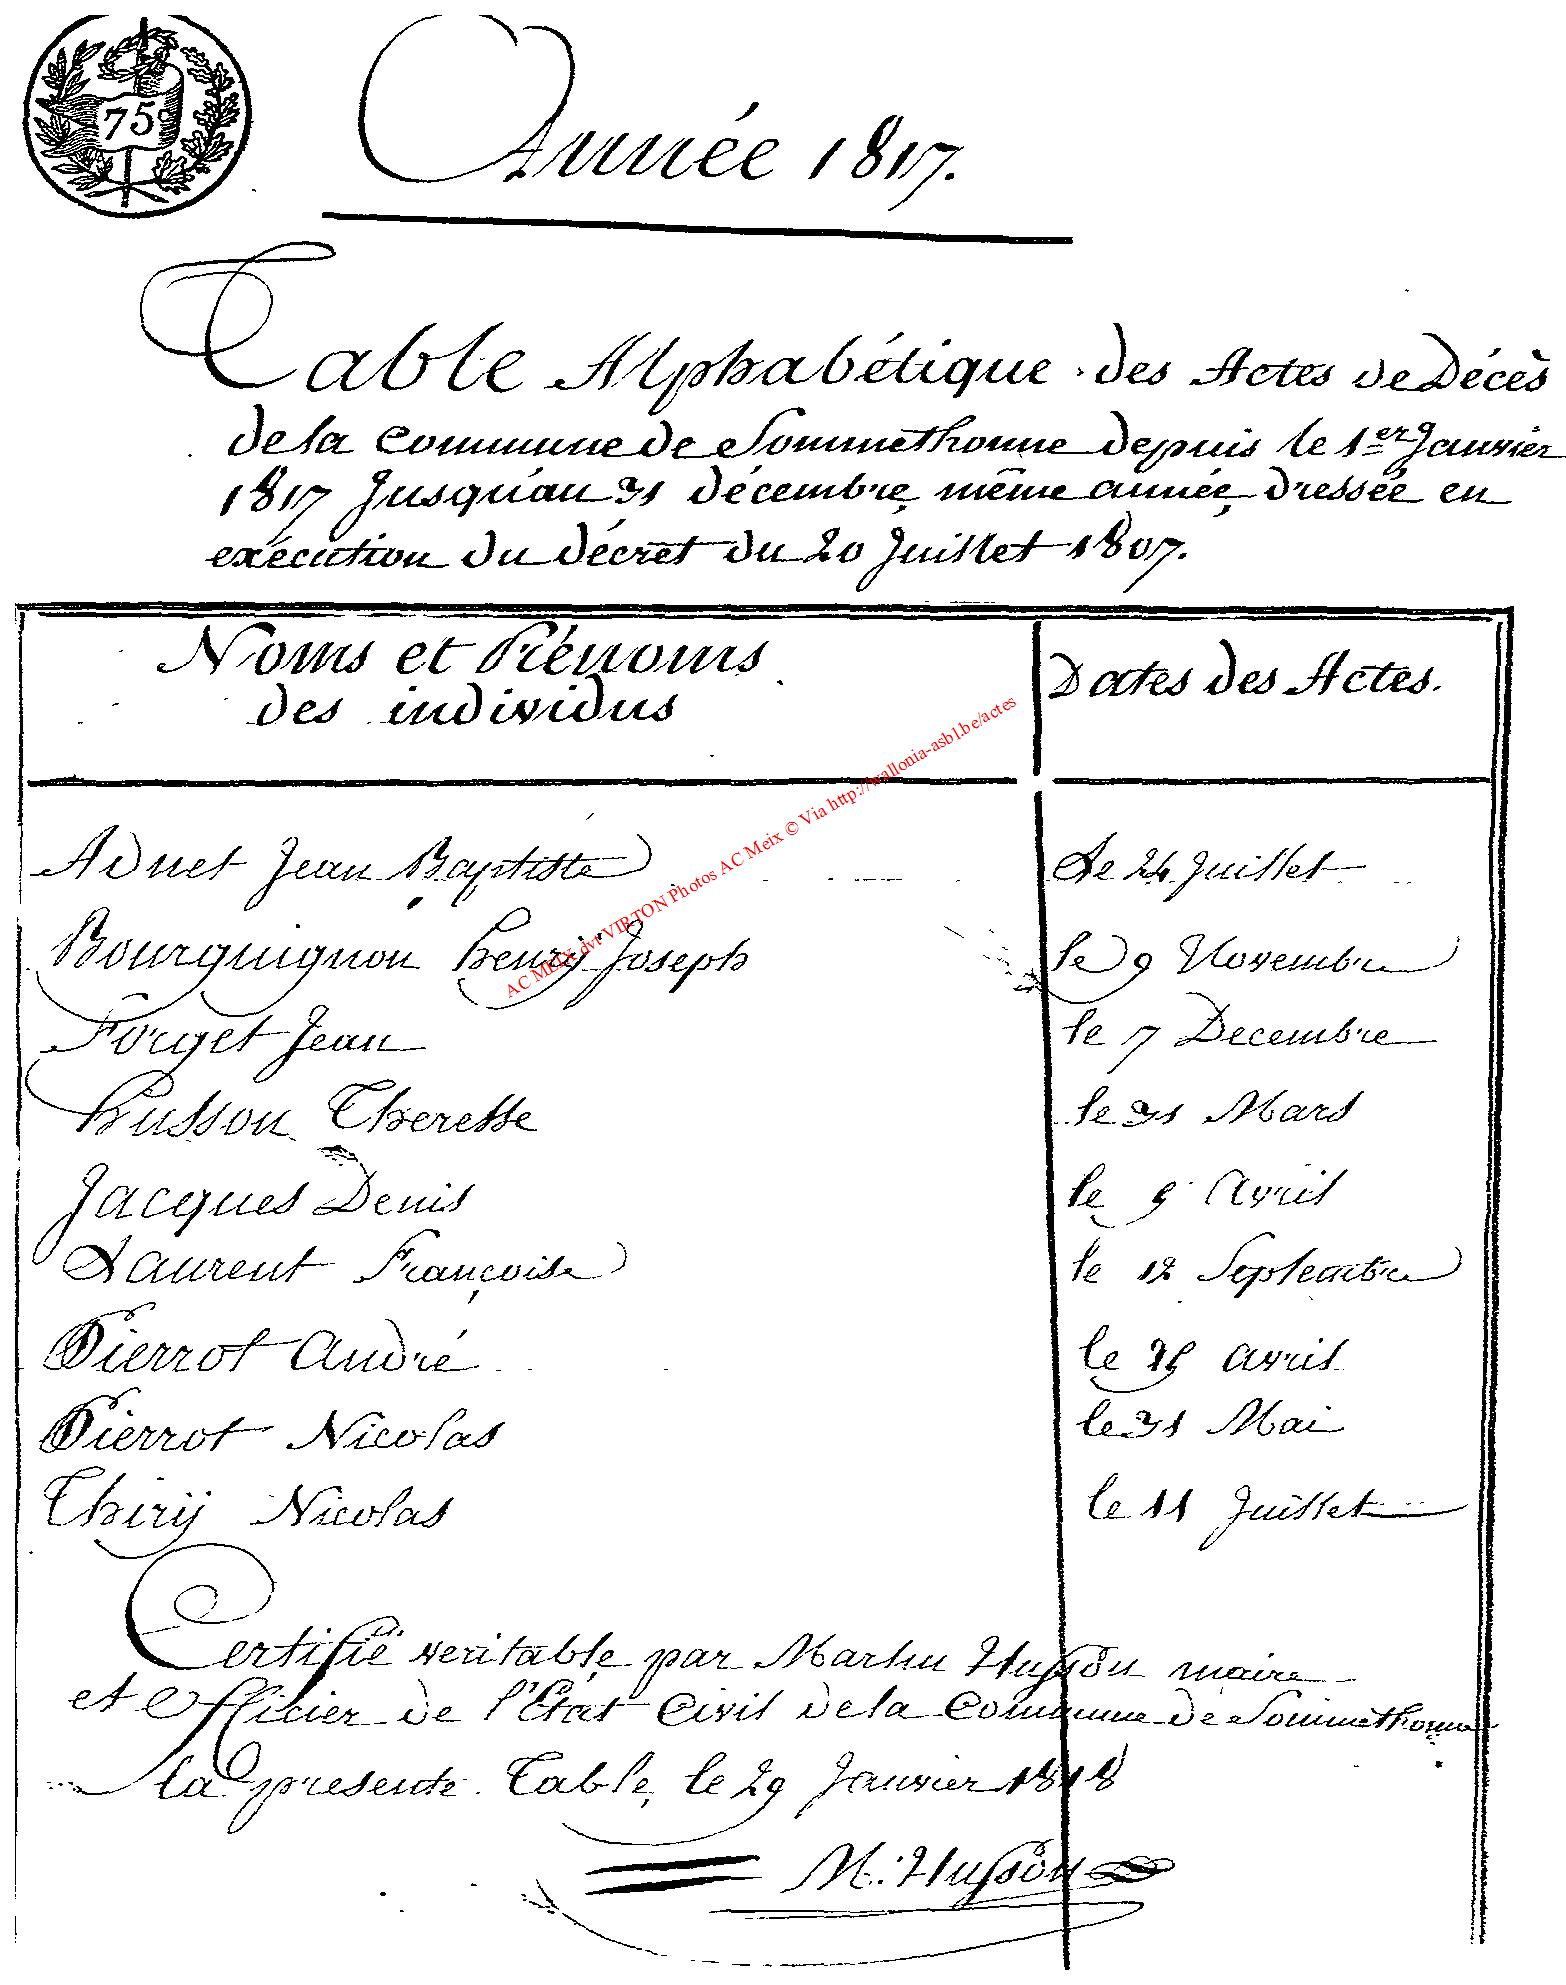 75c
Année 1817.
Table Alphabétique des Actes de Décès
de la Commune de Sommethonne depuis le 1er Janvier
1817 Jusqu'au 31 décembre même année, dressée en
exécution du décret du 20 Juillet 1807.
Noms et Prénoms
des individus
Dates des Actes.
Adnet Jean Baptiste Le 24 Juillet
Bourguignon henry Joseph le 9 Novembre
Forget Jean le 7 Decembre
husson Theresse le 31 Mars
Jacques Denis le 9 avril
Laurent Françoise le 12 Septembre
Pierrot André le 25 avril
Pierrot Nicolas le 31 Mai
Thirÿ Nicolas le 11 Juillet
Certifié veritable par Martin Husson maire
et officier de l'Etat Civil de la Commune de Sommethonne
la presente Table, le 29 Janvier 1818
M. Husson
AC MEIX dvt VIRTON Photos AC Meix © Via http://wallonia-asbl.be/actes